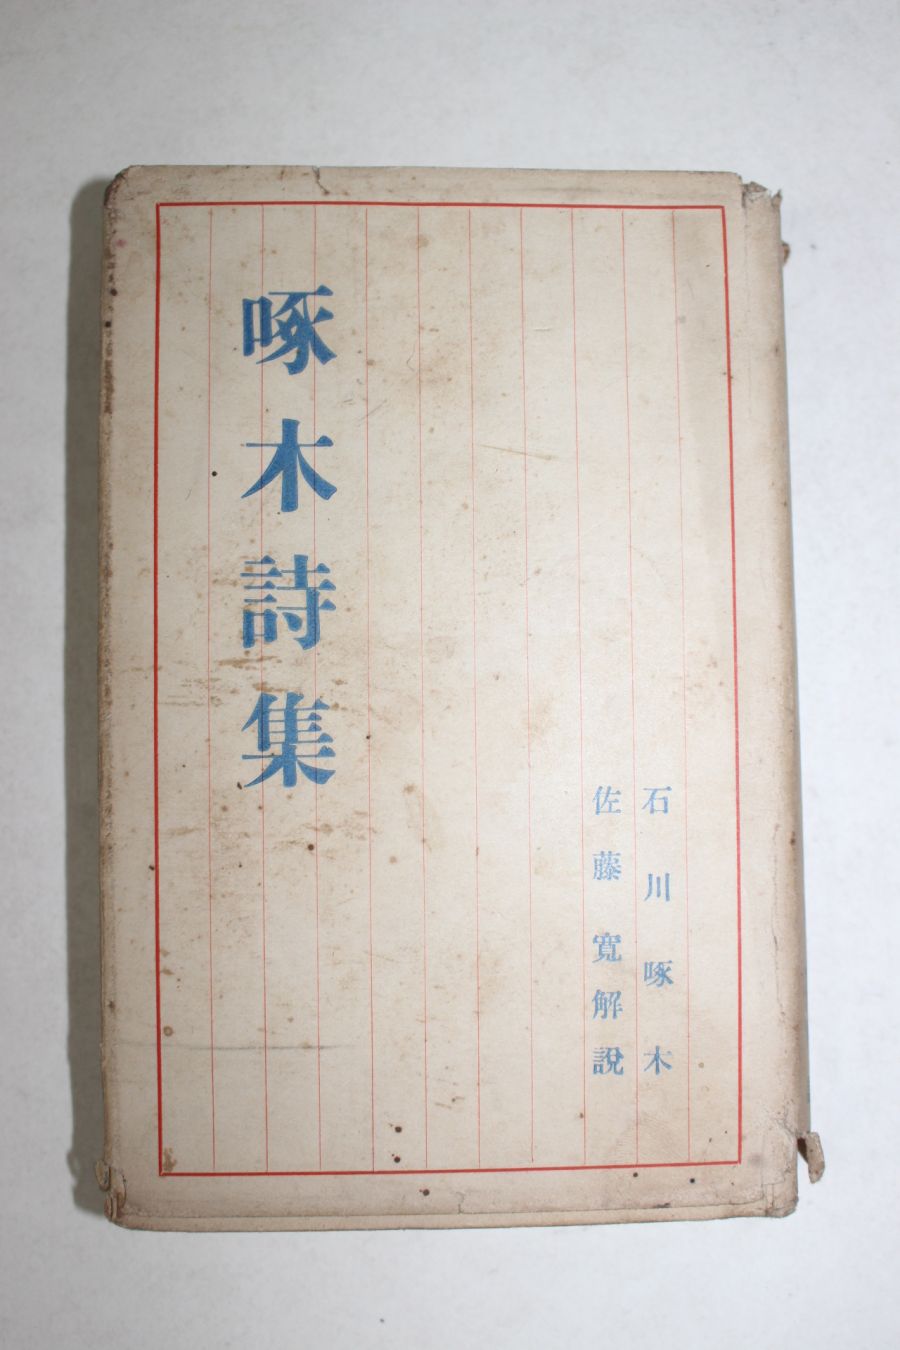 石川啄木
佐藤寛解說
啄木詩集